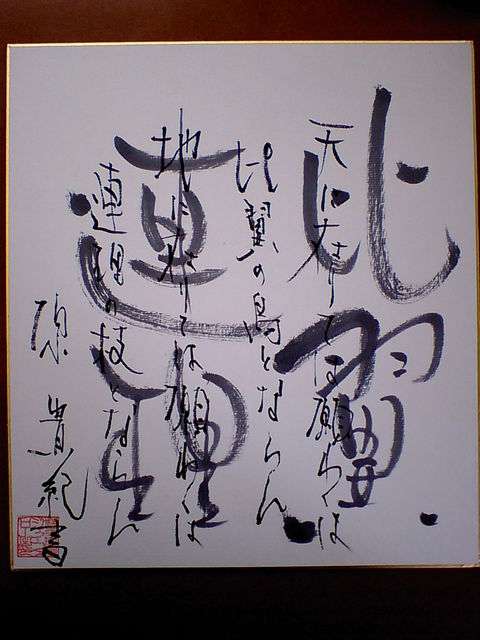 比翼
連理
天に在りては願わくは
比翼の鳥とならん
地に在りては願わくは
連理の枝とならん
原 貴紀 書